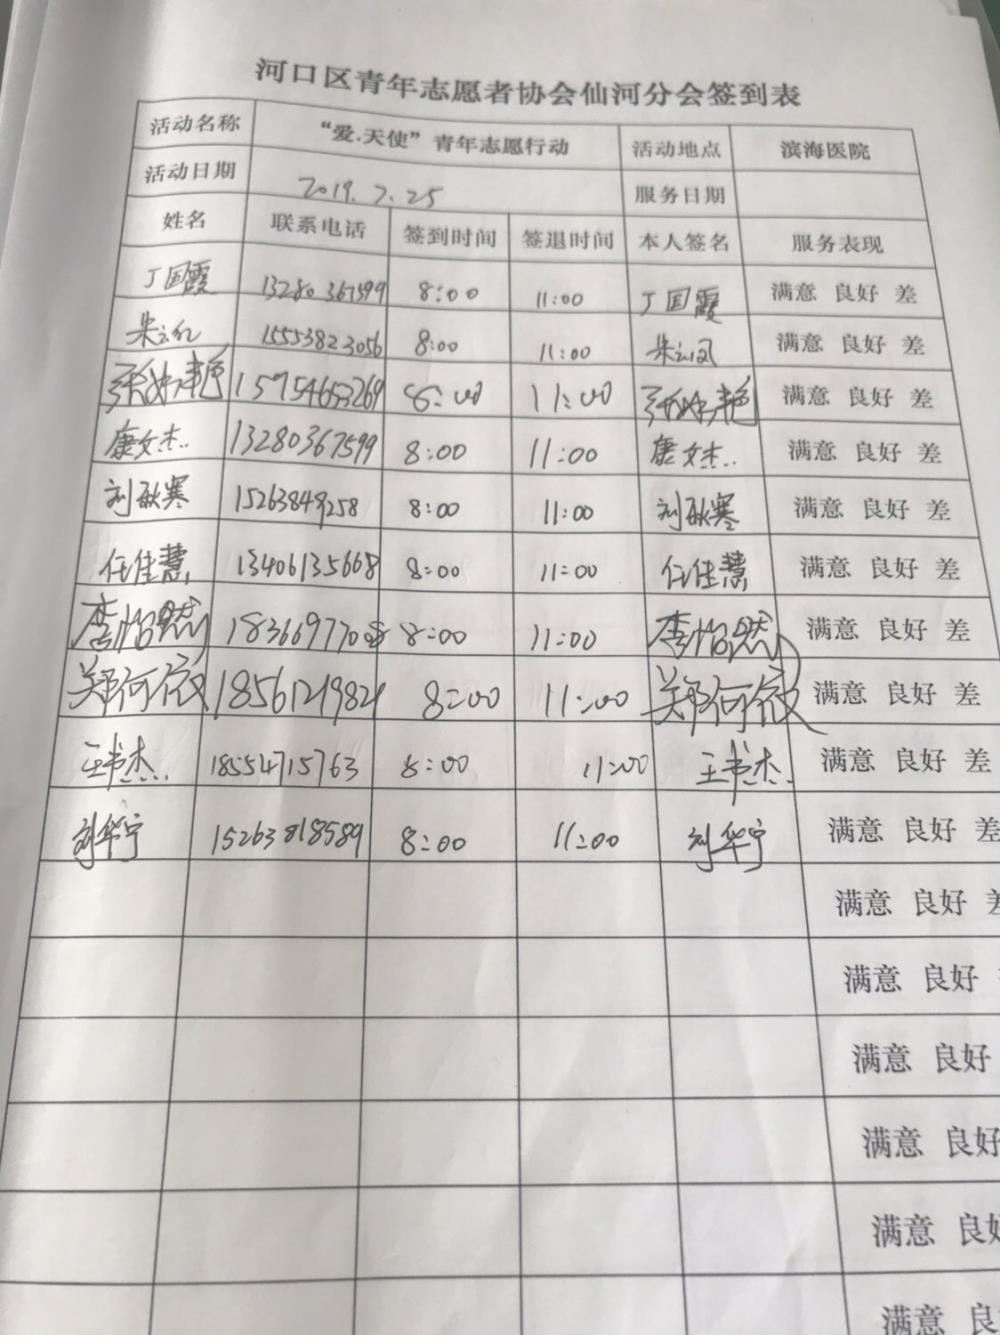 河口区青年志愿者协会仙河分会签到表
活动名称 “爱.天使”青年志愿行动 活动地点 滨海医院
活动日期 2019.7.25 服务日期
姓名 联系电话 签到时间 签退时间 本人签名 服务表现
丁国霞 13280367599 8:00 11:00 丁国霞 满意 良好 差
朱 15553823056 8:00 11:00 朱 满意 良好 差
张 艳 15754653269 8:00 11:00 张 艳 满意 良好 差
康文杰.. 13280367599 8:00 11:00 康文杰.. 满意 良好 差
刘 寒 15263849258 8:00 11:00 刘 寒 满意 良好 差
任佳慧 13406135668 8:00 11:00 任佳慧 满意 良好 差
李怡然 8:00 11:00 李怡然 满意 良好 差
郑何 8:00 11:00 郑何 满意 良好 差
王书杰... 18554715763 8:00 11:00 王书杰.. 满意 良好 差
刘华宁 15263818589 8:00 11:00 刘华宁 满意 良好 差
满意 良好 差
满意 良好
满意 良好
满意 良好
满意 良好
满意 良